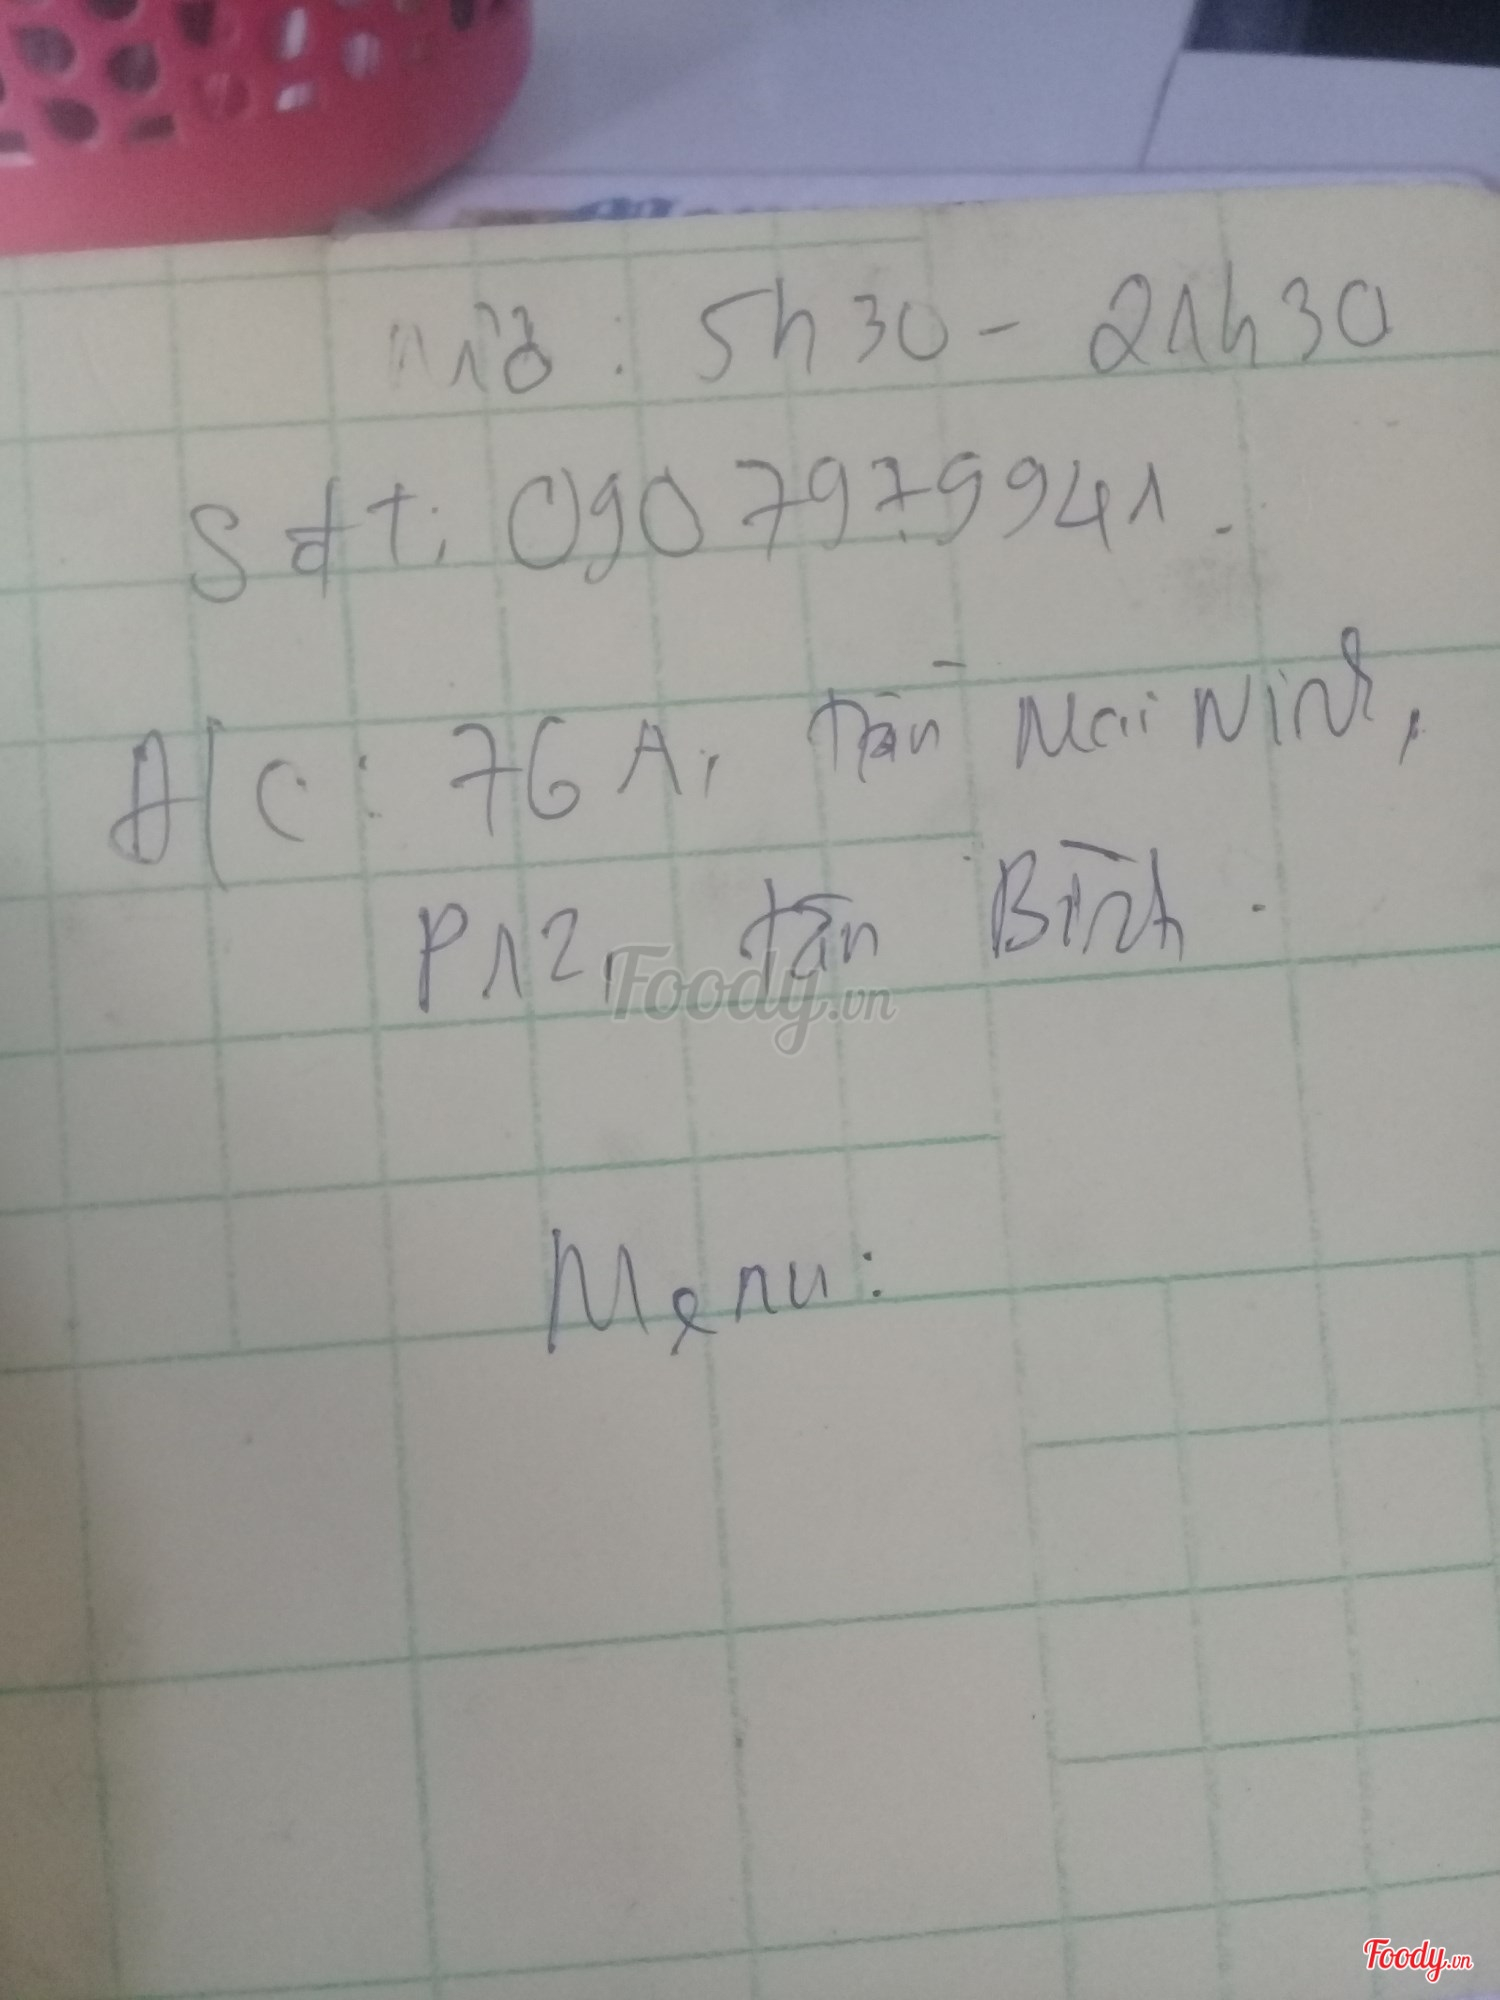 mở: 5h30 - 21h30
Sđt: 0907979941.
Đ/c: 76A, trần Mai Ninh,
P12, tân Bình.
Foody.vn
Menu:
Foody.vn